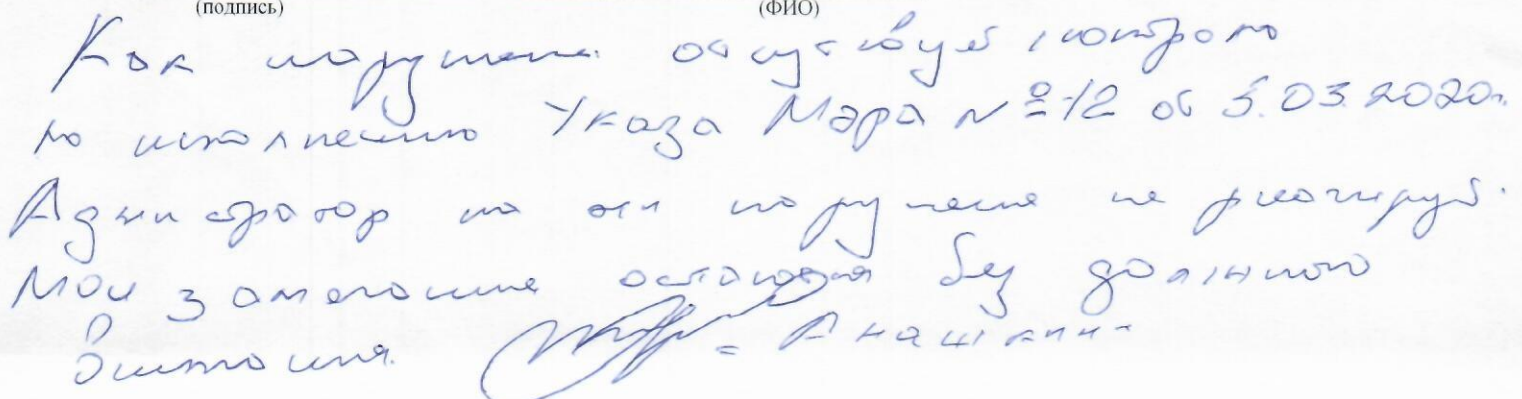 (подпись) (ФИО)
Как нарушение отсутствует контроль
по исполнению Указа Мэра №12 от 5.03.2020г.
Администратор на эти нарушения не реагирует.
Мои замечания остаются без должного
Внимания. Анашкин